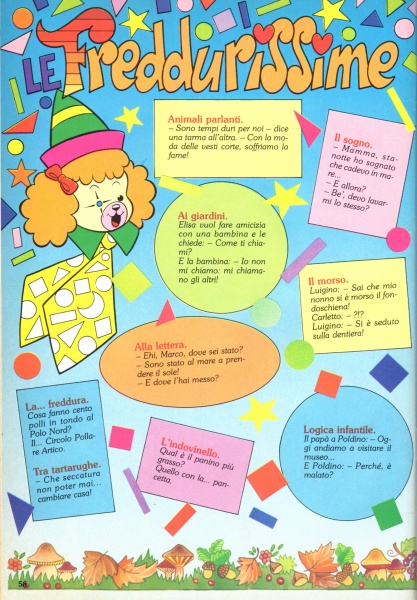 LE Freddurissime
Animali parlanti.
– Sono tempi duri per noi – dice
una tarma all'altra. – Con la mo-
da delle vesti corte, soffriamo la
fame!
Il sogno.
– Mamma, sta-
notte ho sognato
che cadevo in ma-
re...
– E allora?
– Be', devo lavar-
mi lo stesso?
Ai giardini.
Elisa vuol fare amicizia
con una bambina e le
chiede: – Come ti chia-
mi?
E la bambina: – Io non
mi chiamo: mi chiama-
no gli altri!
Il morso.
Luigino: – Sai che mio
nonno si è morso il fon-
doschiena!
Carletto: – ?!?
Luigino: – Si è seduto
sulla dentiera!
Alla lettera.
– Ehi, Marco, dove sei stato?
– Sono stato al mare a pren-
dere il sole!
– E dove l'hai messo?
La... freddura.
Cosa fanno cento
polli in tondo al
Polo Nord?
Il... Circolo Polla-
re Artico.
Tra tartarughe.
– Che seccatura
non poter mai...
cambiare casa!
L'indovinello.
Qual è il panino più
grasso?
Quello con la... pan-
cetta.
Logica infantile.
Il papà a Poldino: – Og-
gi andiamo a visitare il
museo...
E Poldino: – Perché, è
malato?
58